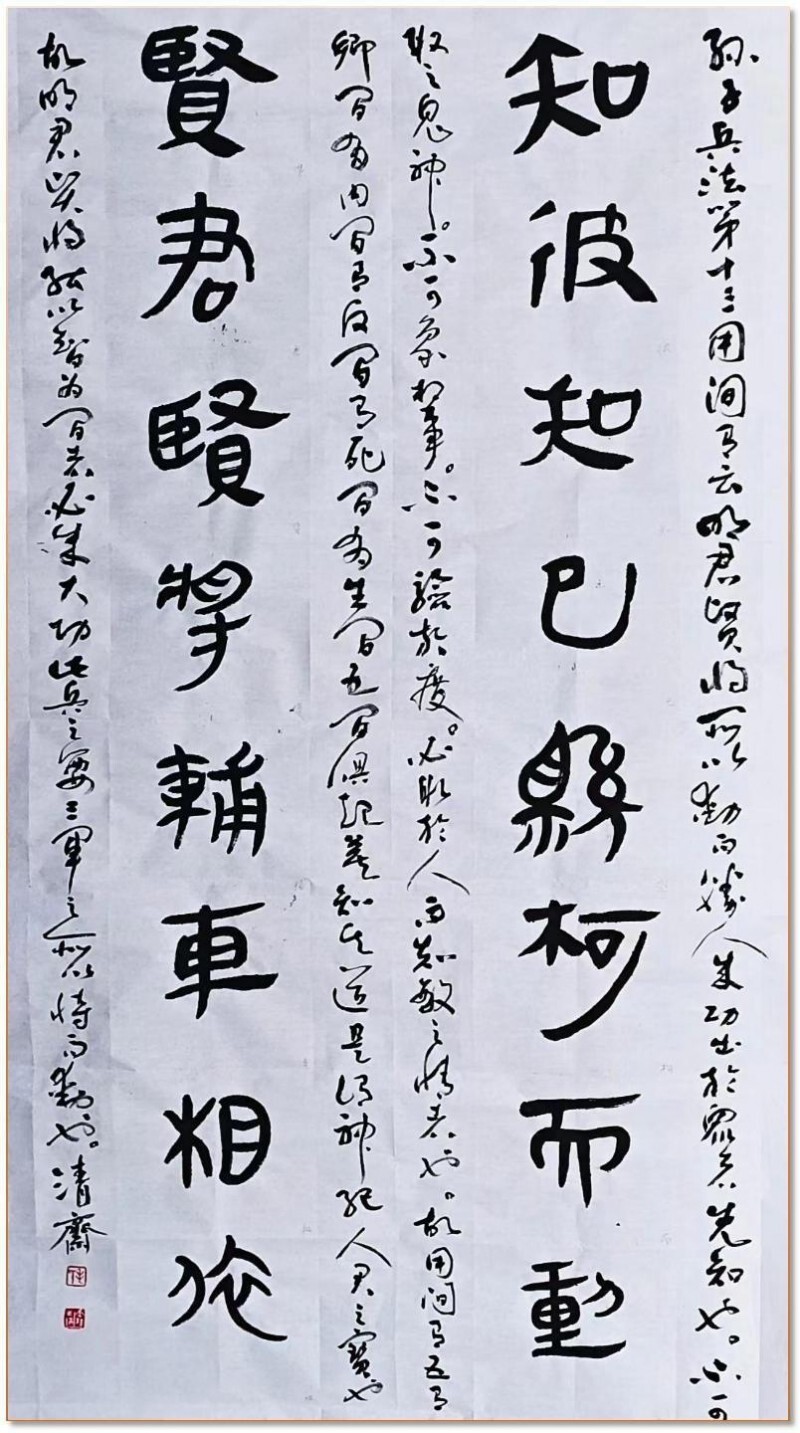 孫子兵法第十三用间有云明君賢将所以動而勝人成功出於眾者先知也。不可
知彼知己縣柯而動
取之鬼神。不可象於事。不可驗於度。必取於人而知敵之情者也。故用间有五有
鄉間有内間有反間有死間有生間五間俱起莫知其道是謂神紀人君之寶也
賢君賢將輔車相依
故明君賢将能以智为間者必成大功此兵之要三軍之所以恃而動也。清齋